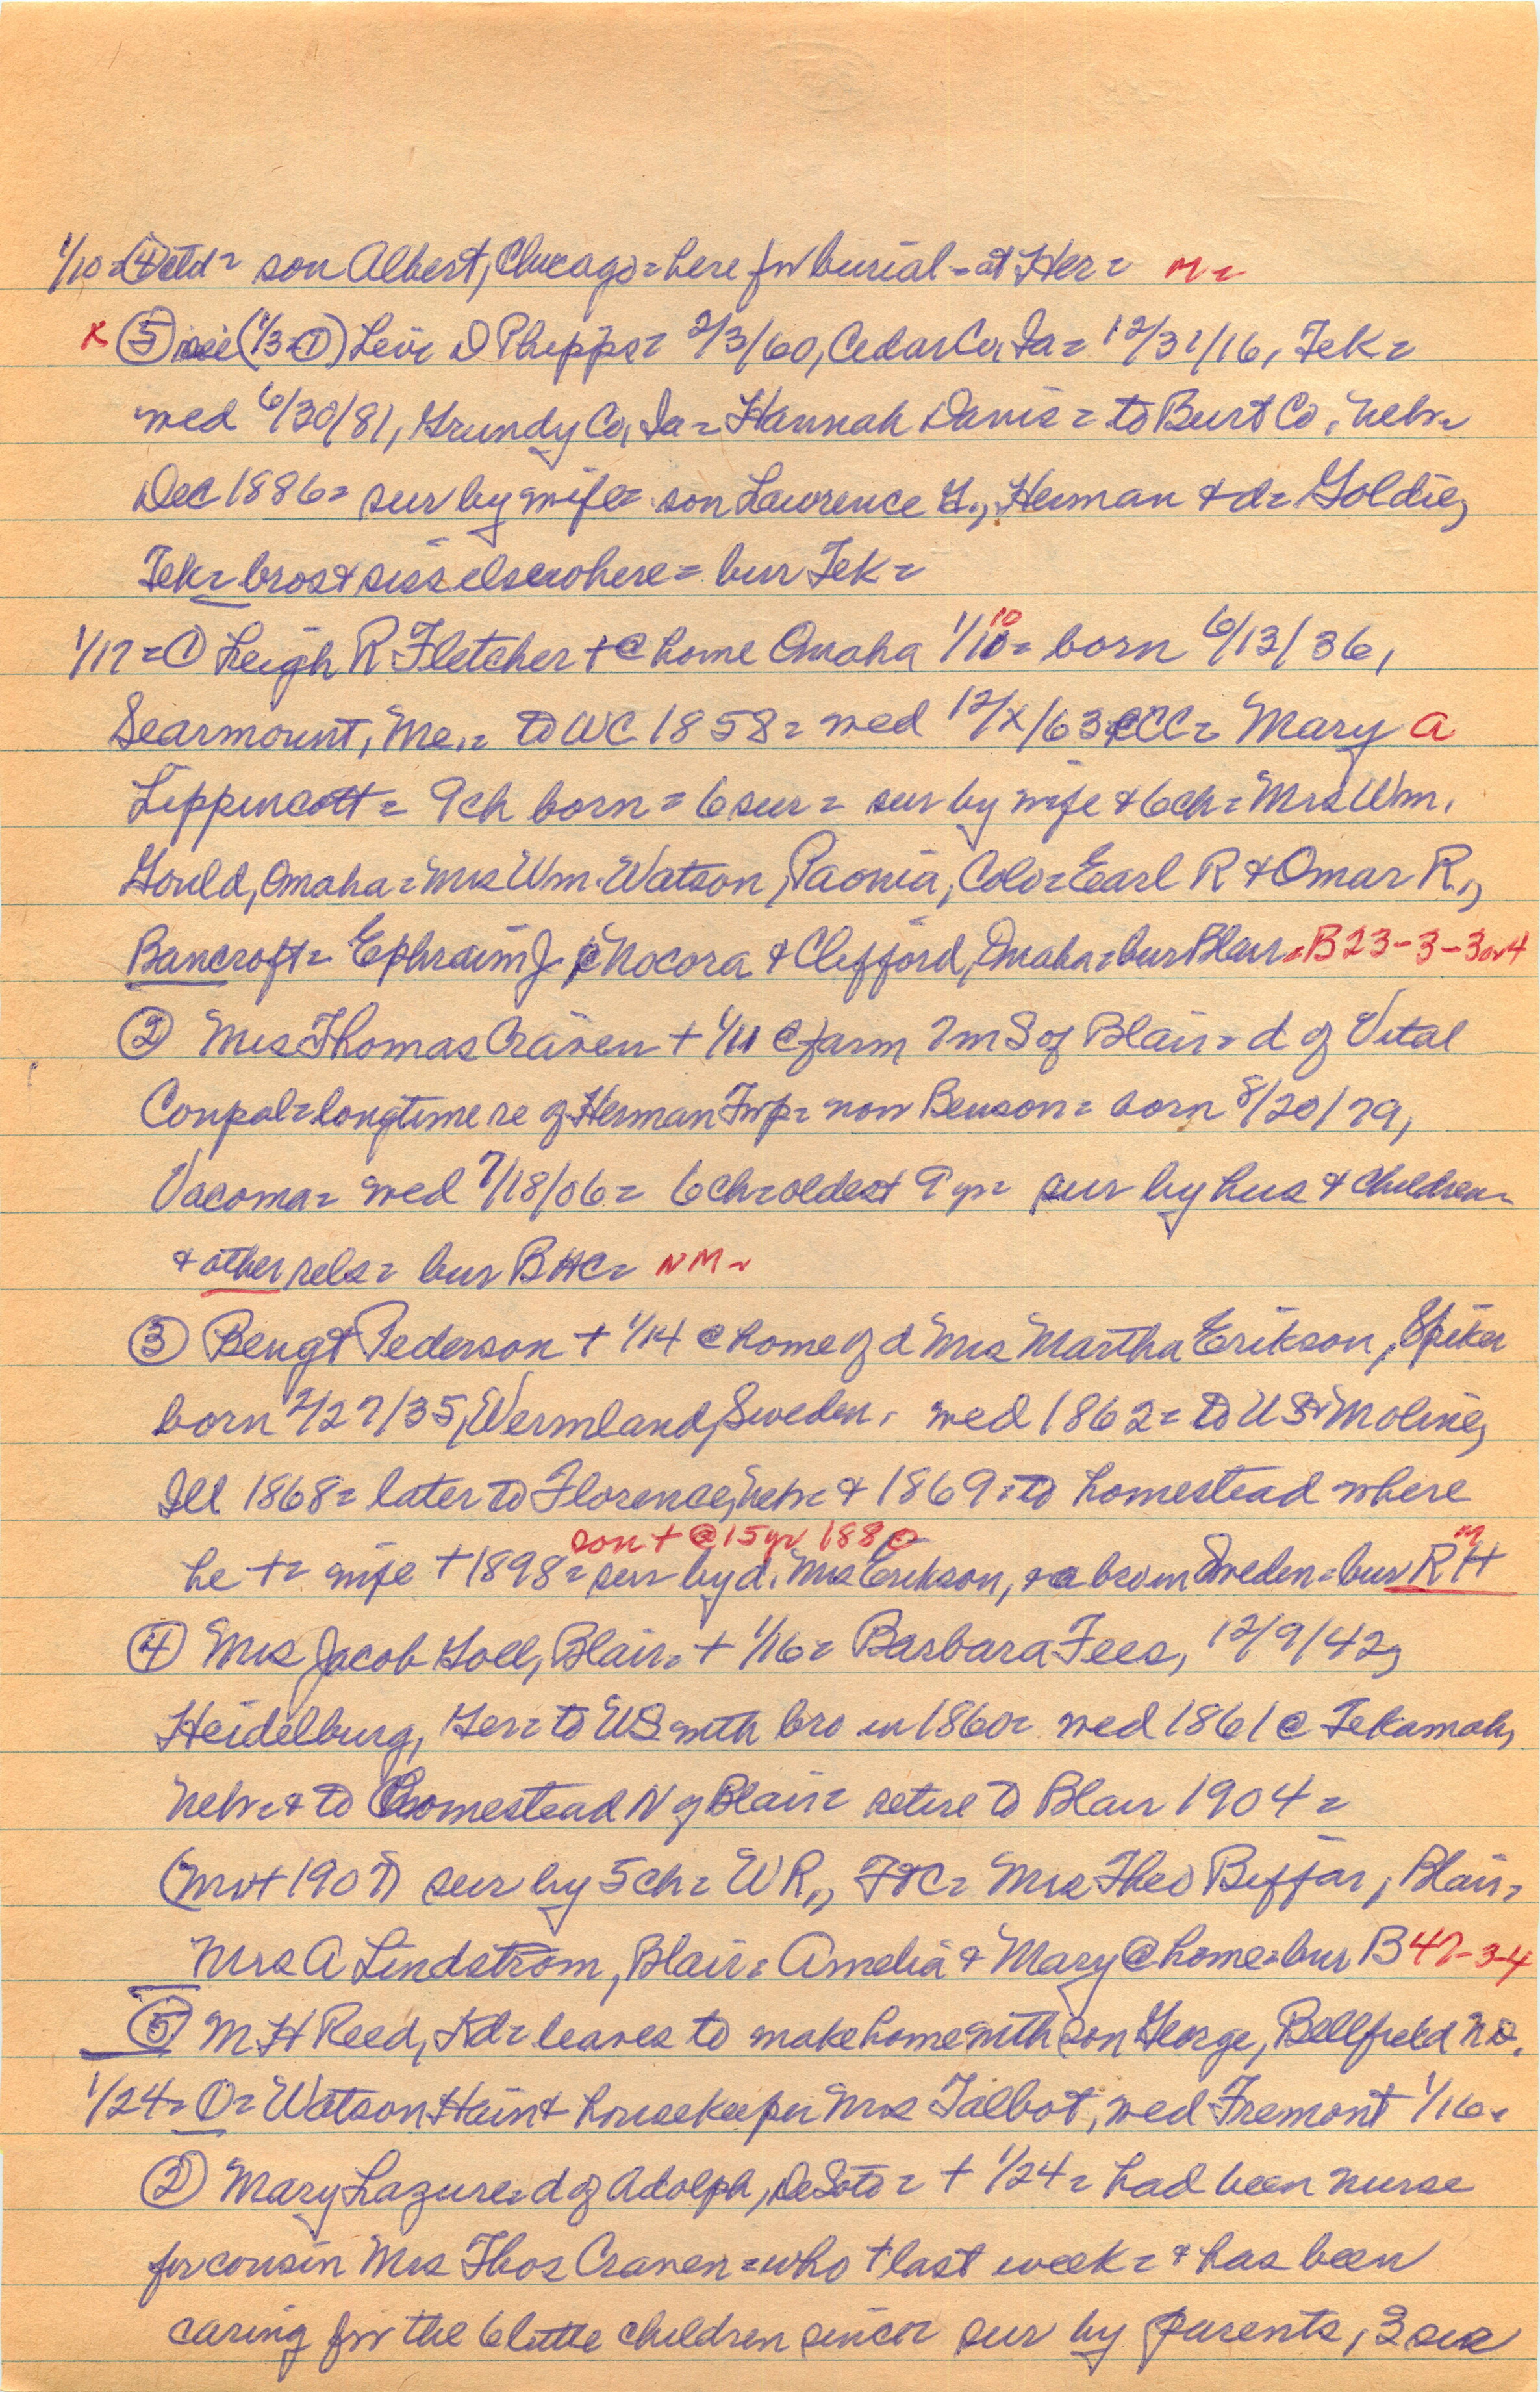 1/10 = (4) ctd = son Albert, Chicago = here for burial - at Her = M =
x (5) see (1/3 = (1)) Levi D Phipps = 2/3/60, Cedar Co, Ia = 12/31/16, Tek =
wed 6/30/81, Grundy Co, Ia = Hannah Davis = to Burt Co, Nebr =
Dec 1886 = sur by wife = son Lawrence G., Herman & d = Goldie,
Tek = bros & siss elsewhere = bur Tek =
1/17 = (1) Leigh R Fletcher + @ home Omaha 1/10 10 = born 6/13/36,
Searmount, Me., = to WC 1858 = wed 12/x/63 @ CC = Mary A
Lippencott = 9ch born = 6 sur = sur by wife & 6ch = Mrs Wm.
Gould, Omaha = Mrs Wm. Watson, Paonia, Colo = Earl R & Omar R.,
Bancroft = Ephraim J, Nocora & Clifford, Omaha = bur Blair = B23-3-3or4
(2) Mrs Thomas Craven + 1/11 @ farm 7m S of Blair = d of Vital
Coupal = longtime re of Herman Twp = now Benson = born 8/20/79,
Vacoma = wed 7/18/06 = 6ch = oldest 9 yr = sur by hus & children =
& other rels = bur BHC = NM =
(3) Bengt Pederson + 1/14 @ home of d Mrs Martha Erikson, Spiker
born 2/27/35, Wermland, Sweden, wed 1862 = to US & Moline,
Ill 1868 = later to Florence, Nebr = & 1869 = to homestead where
son + @ 15 yr 1880
he + = wife + 1898 = sur by d. Mrs Erikson, & a bro in Sweden = bur RH M
(4) Mrs Jacob Goll, Blair = + 1/16 = Barbara Fees, 12/9/42,
Heidelburg, Ger = to US with bro in 1860 = wed 1861 @ Tekamah,
Nebr = & to homestead N of Blair = retire to Blair 1904 =
(Mr + 1907) sur by 5ch = WR., F & C = Mrs Theo Biffar, Blair =
Mrs A Lindstrom, Blair = Amelia & Mary @ home = bur B 47-3-4
(5) M H Reed, Kd = leaves to make home with son George, Bellfield N.D.
1/24 = (1) = Watson Hain & housekeeper Mrs Talbot, wed Fremont 1/16 =
(2) Mary Lazure = d of Adolph, DeSoto = + 1/24 = had been nurse
for cousin Mrs Thos Craven = who + last week = & has been
caring for the 6 little children since = sur by parents, 3 sis